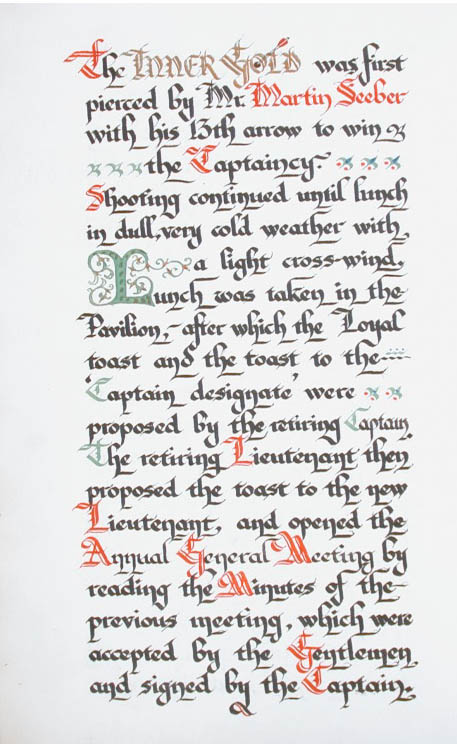 The INNER GOLD was first
pierced by Mr. Martin Seeber
with his 13th arrow to win
the Captaincy.
Shooting continued until lunch
in dull, very cold weather with,
a light cross-wind.
Lunch was taken in the
Pavilion,- after which the Loyal
toast and the toast to the
'Captain designate' were
proposed by the retiring Captain.
The retiring Lieutenant then
proposed the toast to the new
Lieutenant, and opened the
Annual General Meeting by
reading the Minutes of the
previous meeting, which were
accepted by the Gentlemen
and signed by the Captain.